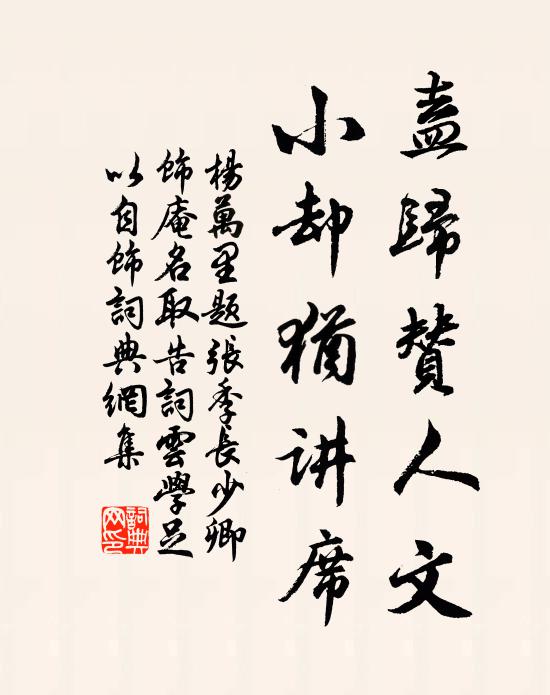 盍歸贊人文
小却猶讲席
楊萬里題張季長少卿
飾庵名取告詞雲學足
以自飾詞典網集
詞典网印